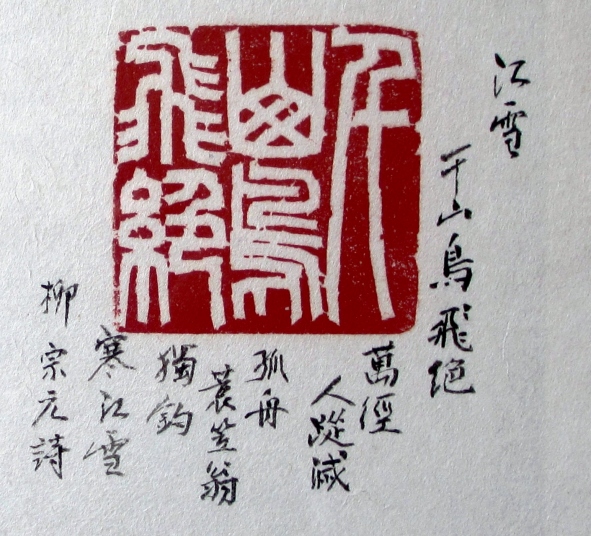 千
山鳥
飛絕
江雪
千山鳥飛絕
萬徑
人蹤滅
孤舟
蓑笠翁
獨釣
寒江雪
柳宗元詩